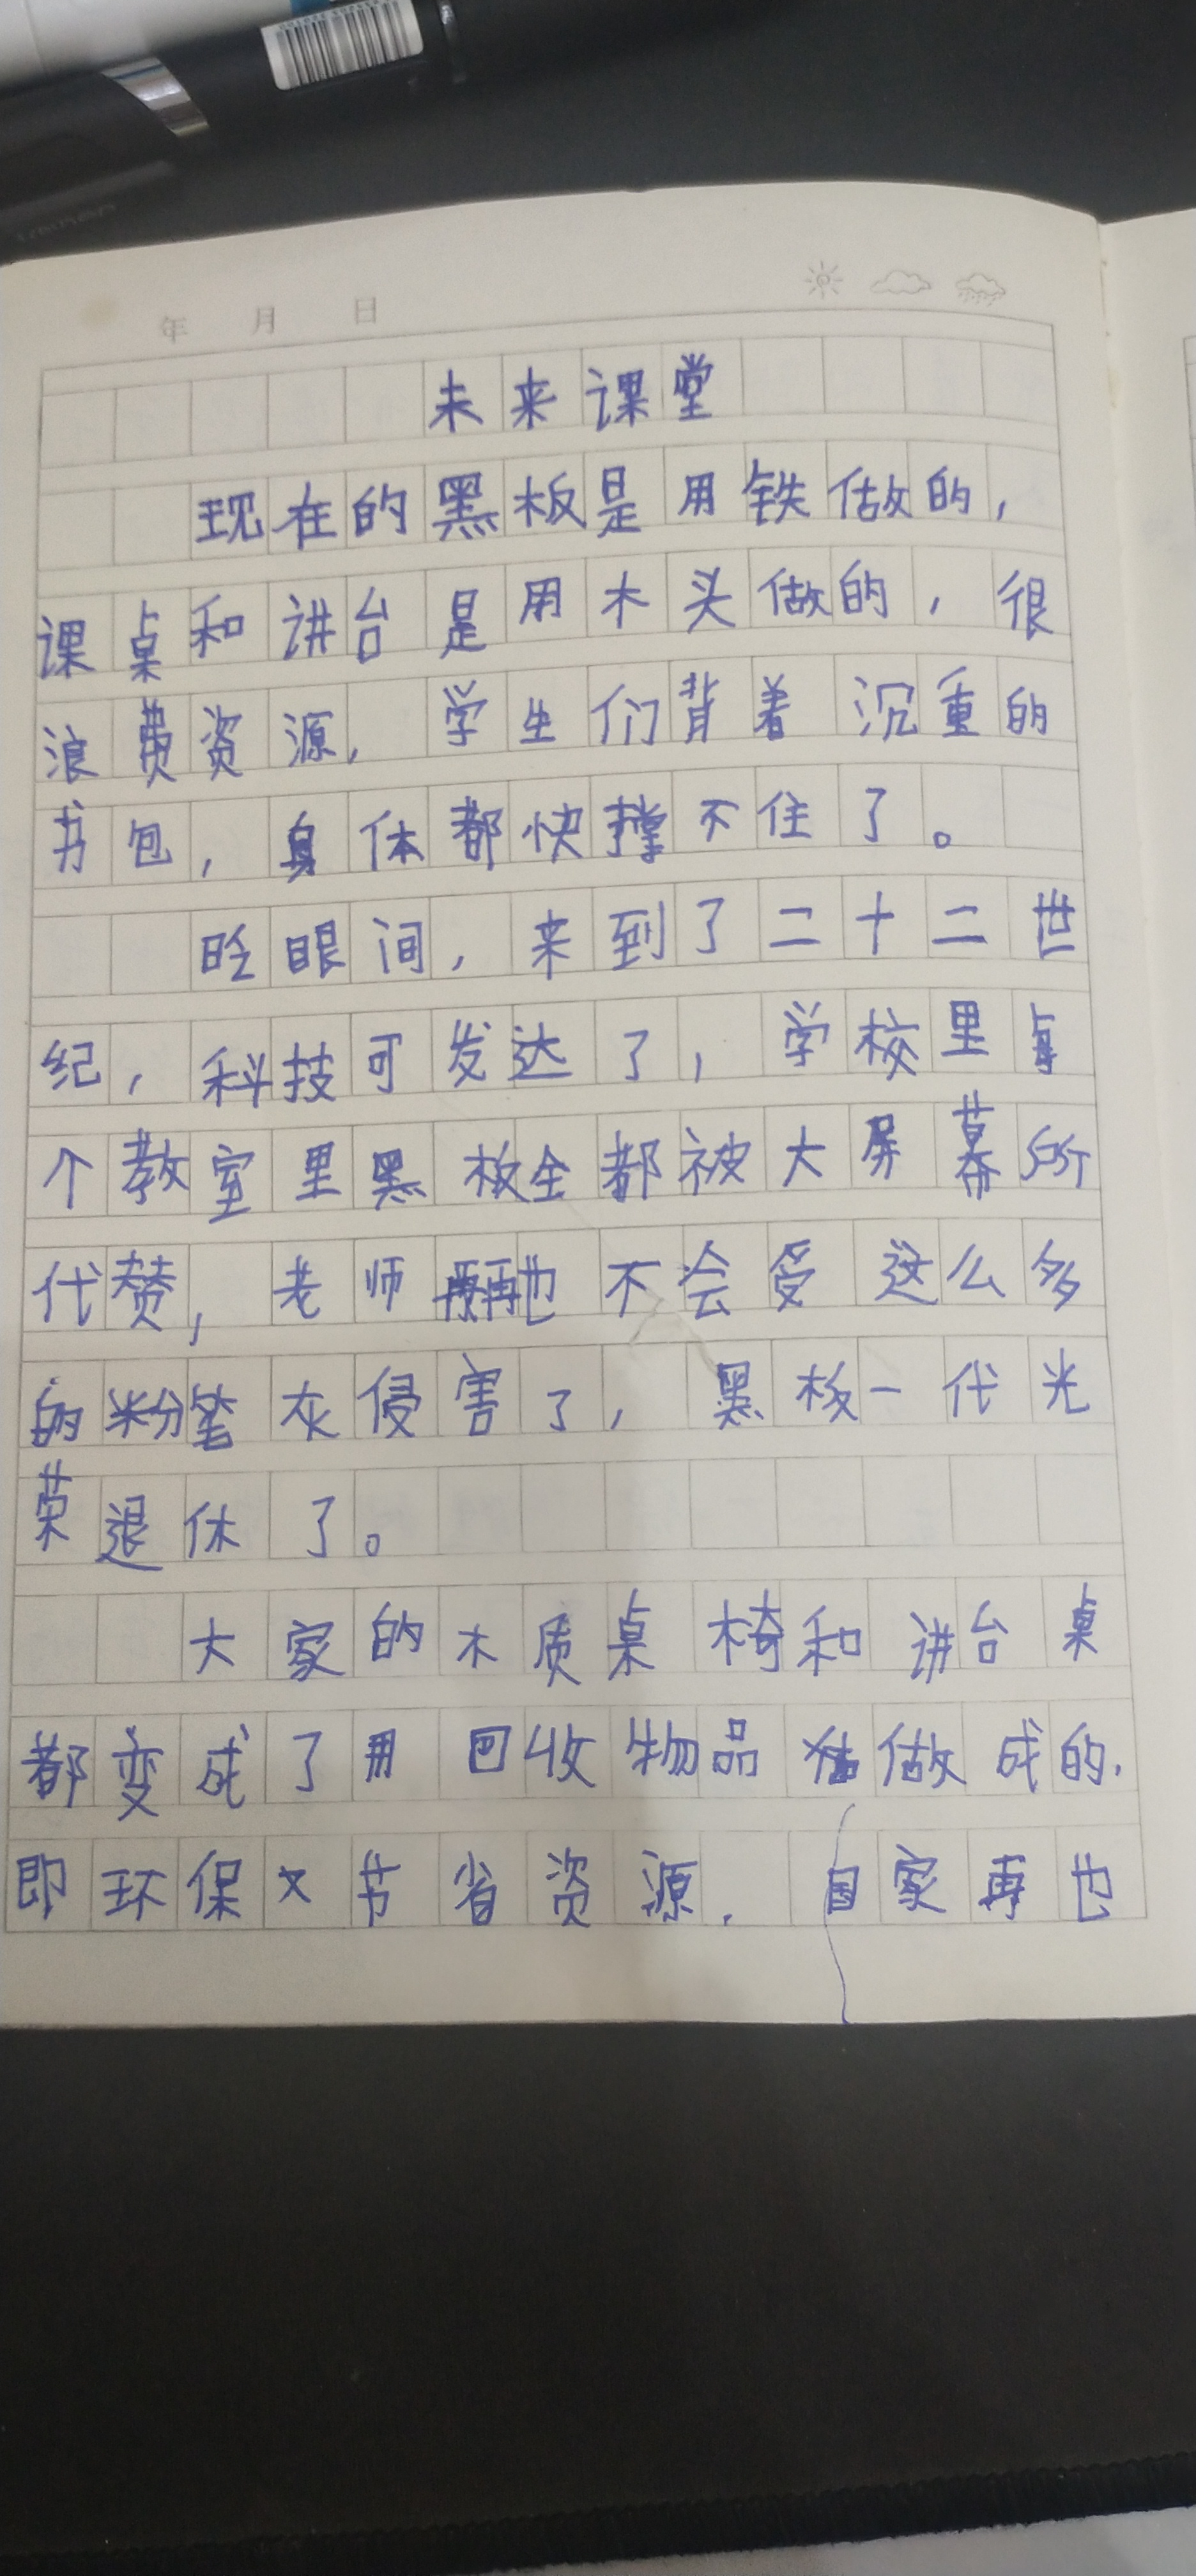 年 月 日
未来课堂
现在的黑板是用铁做的，
课桌和讲台是用木头做的，很
浪费资源，学生们背着沉重的
书包，身体都快撑不住了。
眨眼间，来到了二十二世
纪，科技可发达了，学校里每
个教室里黑板全都被大屏幕所
代赞，老师再也不会受这么多
的粉笔灰侵害了，黑板一代光
荣退休了。
大家的木质桌椅和讲台桌
都变成了用回收物品做成的.
即环保又节省资源.国家再也